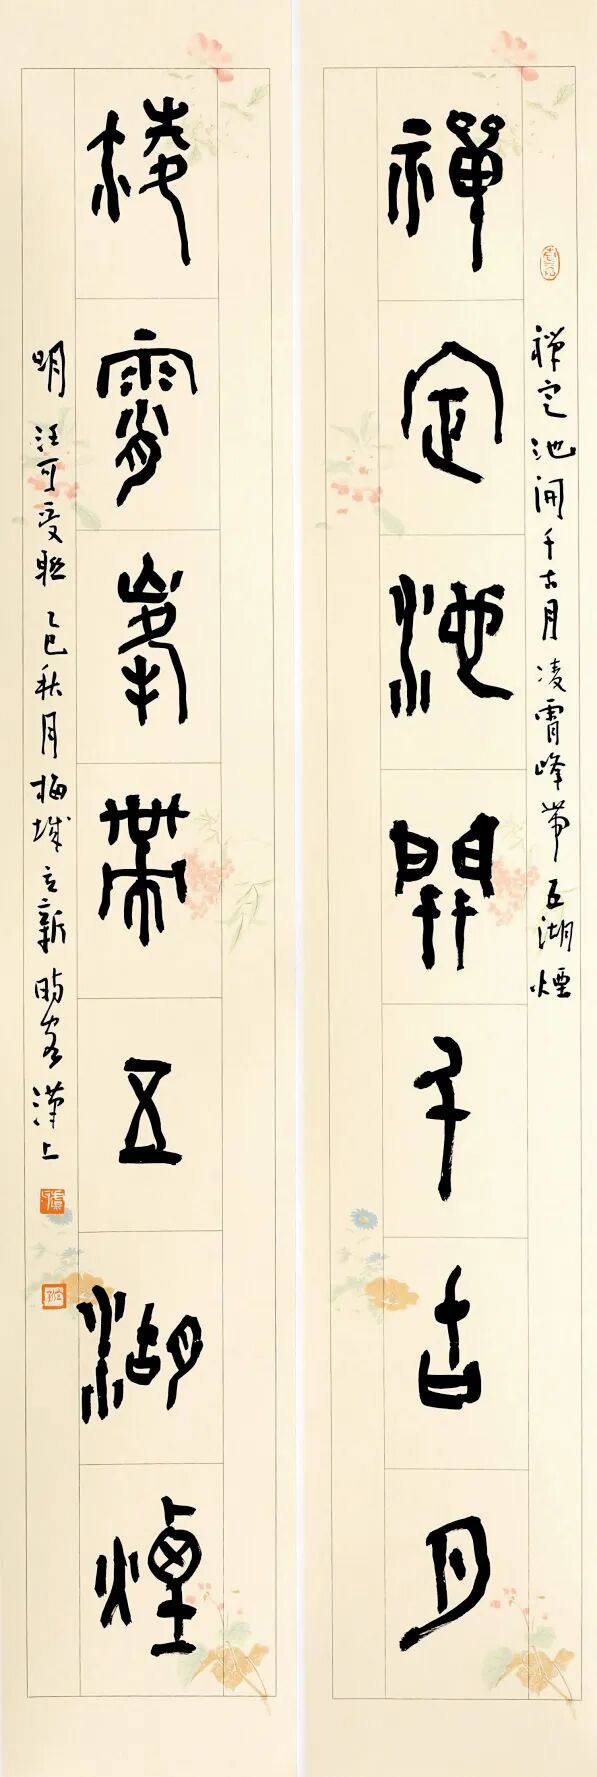 禪定池開千古月
禅定池開千古月凌霄峰带五湖煙
棱霄峯帶五湖煙
明汪可受聯乙巳秋月梅城立新時客漢上